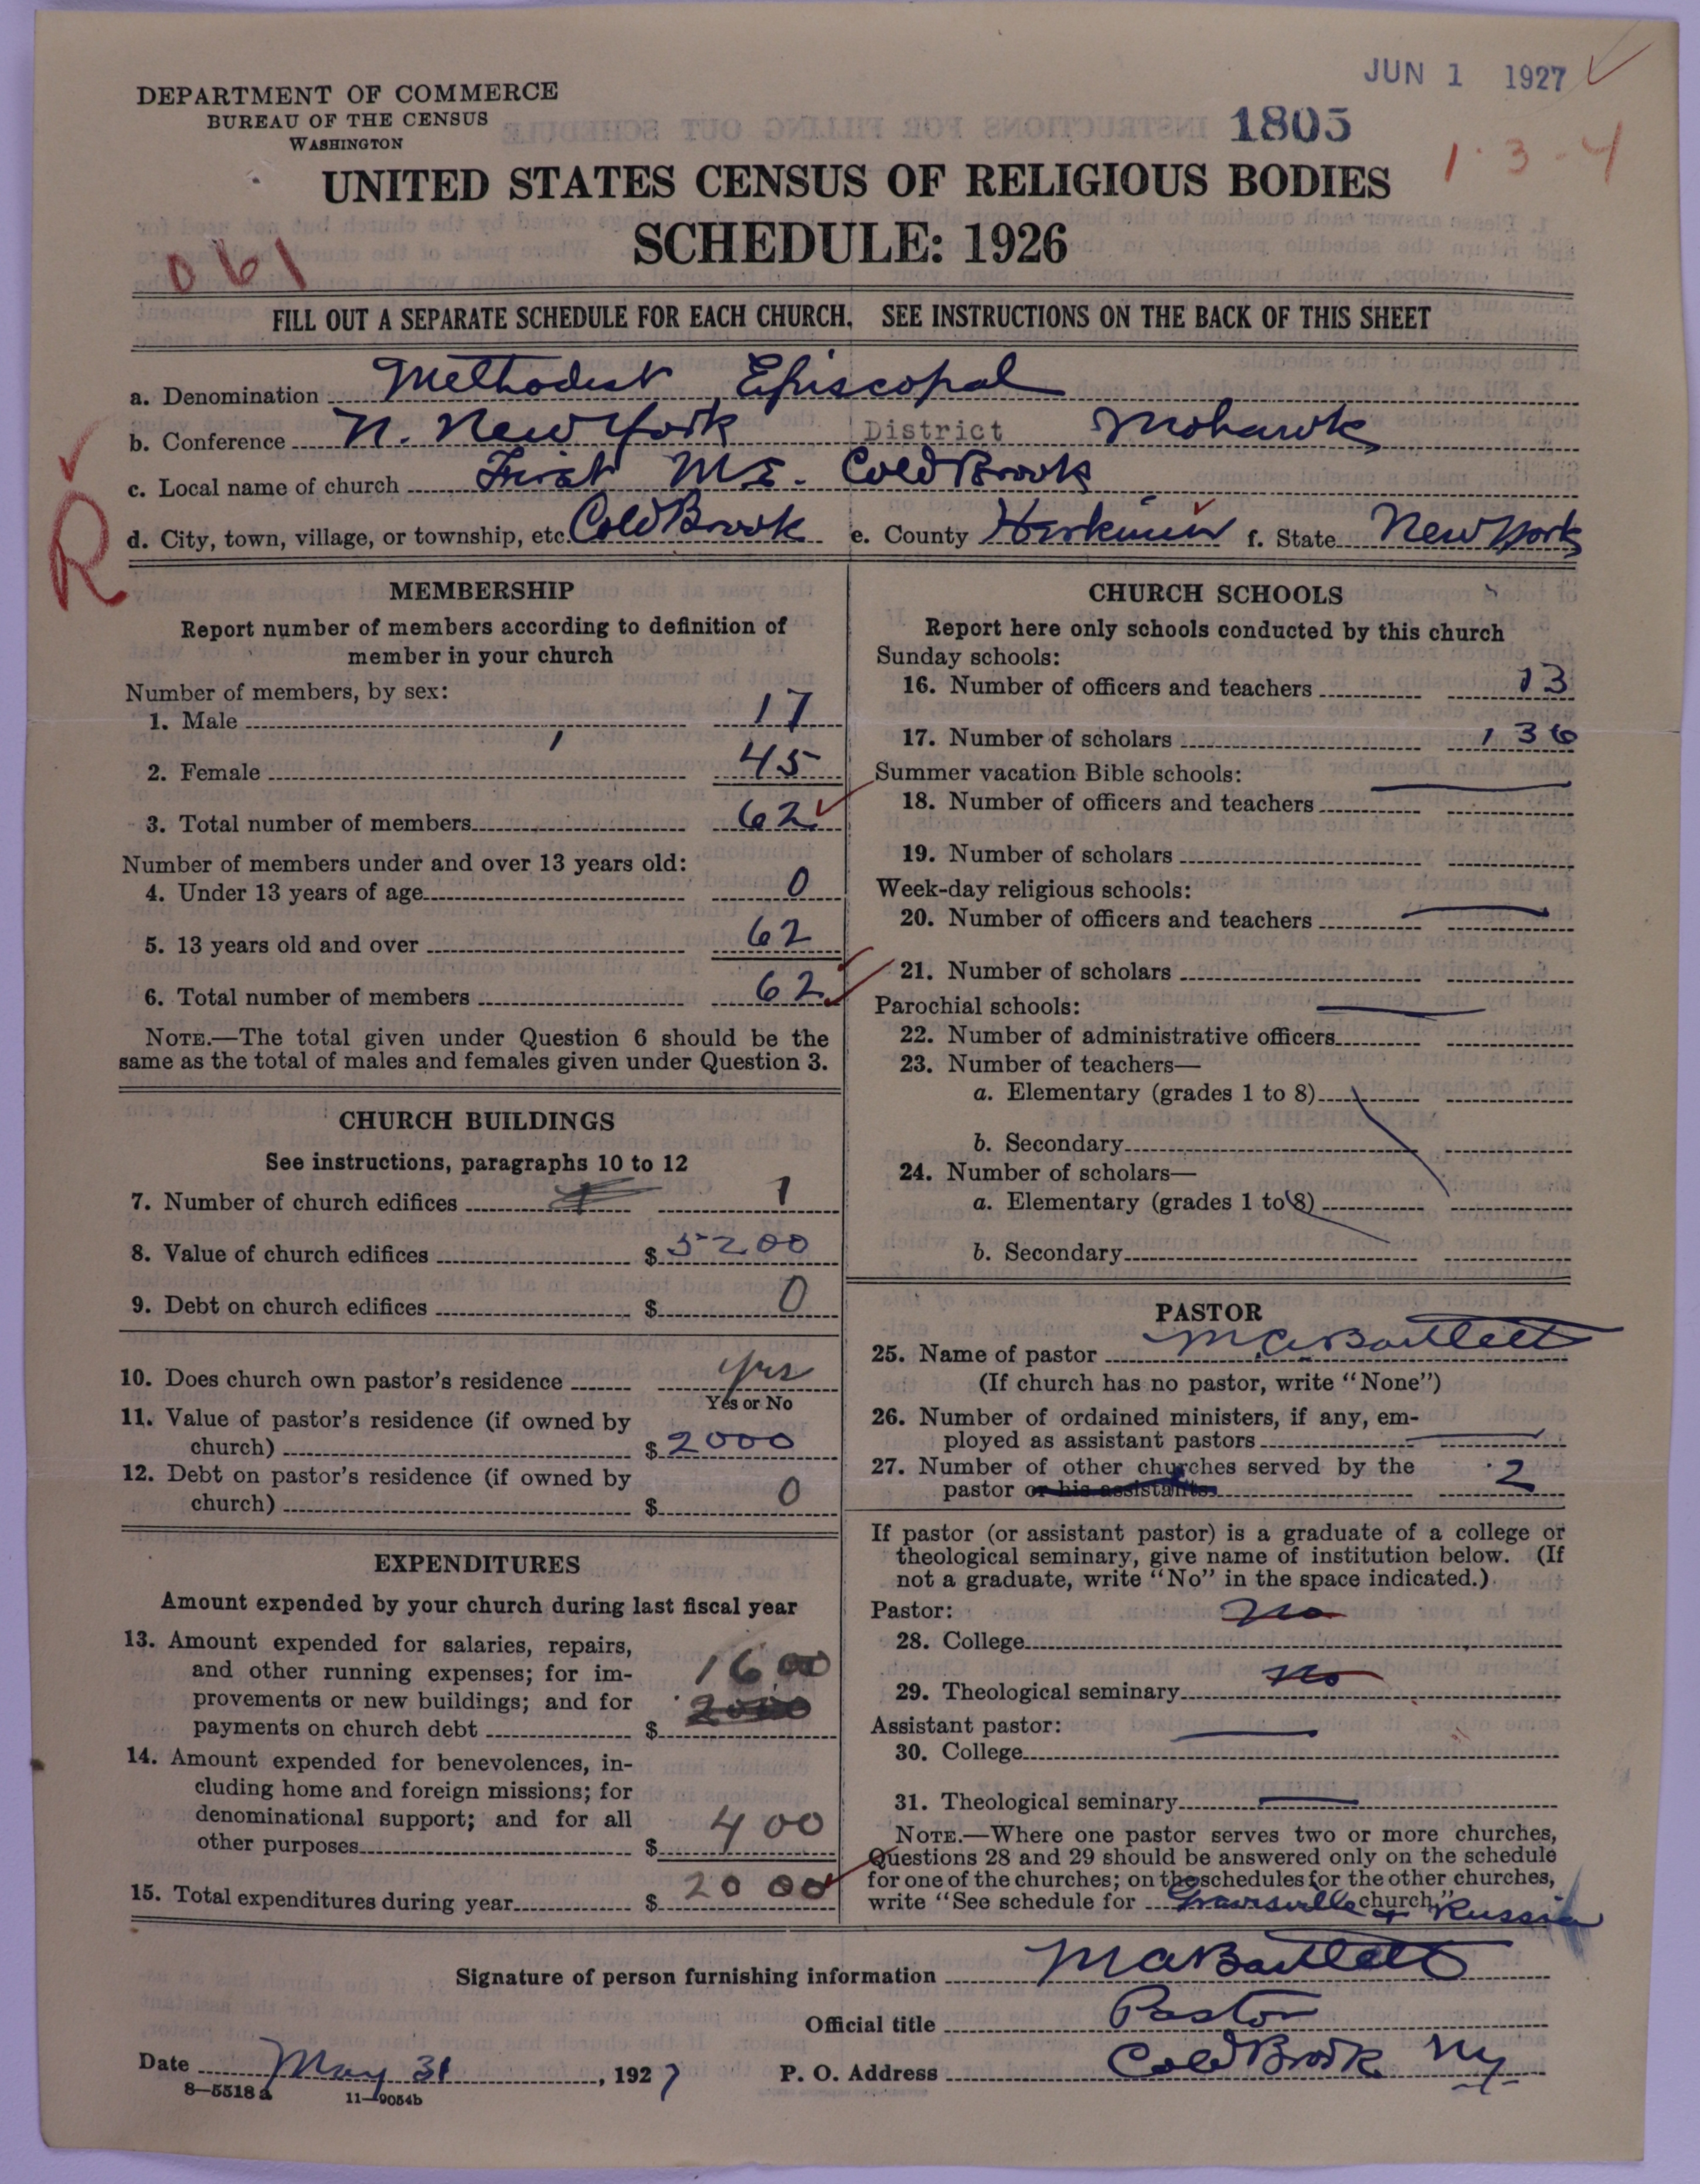 JUN 1 1927
DEPARTMENT OF COMMERCE
BUREAU OF THE CENSUS
WASHINGTON
1805
1·3-4
UNITED STATES CENSUS OF RELIGIOUS BODIES
SCHEDULE: 1926
061
FILL OUT A SEPARATE SCHEDULE FOR EACH CHURCH. SEE INSTRUCTIONS ON THE BACK OF THIS SHEET
a. Denomination Methodist Episcopal
b. Conference N. New York District Mohawk
c. Local name of church First M.E. Cold Brook
d. City, town, village, or township, etc. Cold Brook e. County Herkimer f. State New York
R
MEMBERSHIP
Report number of members according to definition of
member in your church
Number of members, by sex:
1. Male 17
2. Female 45
3. Total number of members 62
Number of members under and over 13 years old:
4. Under 13 years of age 0
5. 13 years old and over 62
6. Total number of members 62
NOTE.—The total given under Question 6 should be the
same as the total of males and females given under Question 3.
CHURCH BUILDINGS
See instructions, paragraphs 10 to 12
7. Number of church edifices 1
8. Value of church edifices $ 5200
9. Debt on church edifices $ 0
10. Does church own pastor's residence Yes
Yes or No
11. Value of pastor's residence (if owned by
church) $ 2000
12. Debt on pastor's residence (if owned by
church) $ 0
EXPENDITURES
Amount expended by your church during last fiscal year
13. Amount expended for salaries, repairs,
and other running expenses; for im-
provements or new buildings; and for
payments on church debt $ 1600
2000
14. Amount expended for benevolences, in-
cluding home and foreign missions; for
denominational support; and for all
other purposes $ 400
15. Total expenditures during year $ 2000
CHURCH SCHOOLS
Report here only schools conducted by this church
Sunday schools:
16. Number of officers and teachers 13
17. Number of scholars 136
Summer vacation Bible schools:
18. Number of officers and teachers
19. Number of scholars
Week-day religious schools:
20. Number of officers and teachers
21. Number of scholars
Parochial schools:
22. Number of administrative officers
23. Number of teachers—
a. Elementary (grades 1 to 8)
b. Secondary
24. Number of scholars—
a. Elementary (grades 1 to 8)
b. Secondary
PASTOR
25. Name of pastor M A Bartlett
(If church has no pastor, write "None")
26. Number of ordained ministers, if any, em-
ployed as assistant pastors
27. Number of other churches served by the
pastor or his assistants 2
If pastor (or assistant pastor) is a graduate of a college or
theological seminary, give name of institution below. (If
not a graduate, write "No" in the space indicated.)
Pastor:
28. College No
29. Theological seminary No
Assistant pastor:
30. College
31. Theological seminary
NOTE.—Where one pastor serves two or more churches,
Questions 28 and 29 should be answered only on the schedule
for one of the churches; on the schedules for the other churches,
write "See schedule for Gravesville church." + Russia
Signature of person furnishing information M A Bartlett
Official title Pastor
Date May 31, 1927 P. O. Address Cold Brook NY
8—5518 a 11—9054b